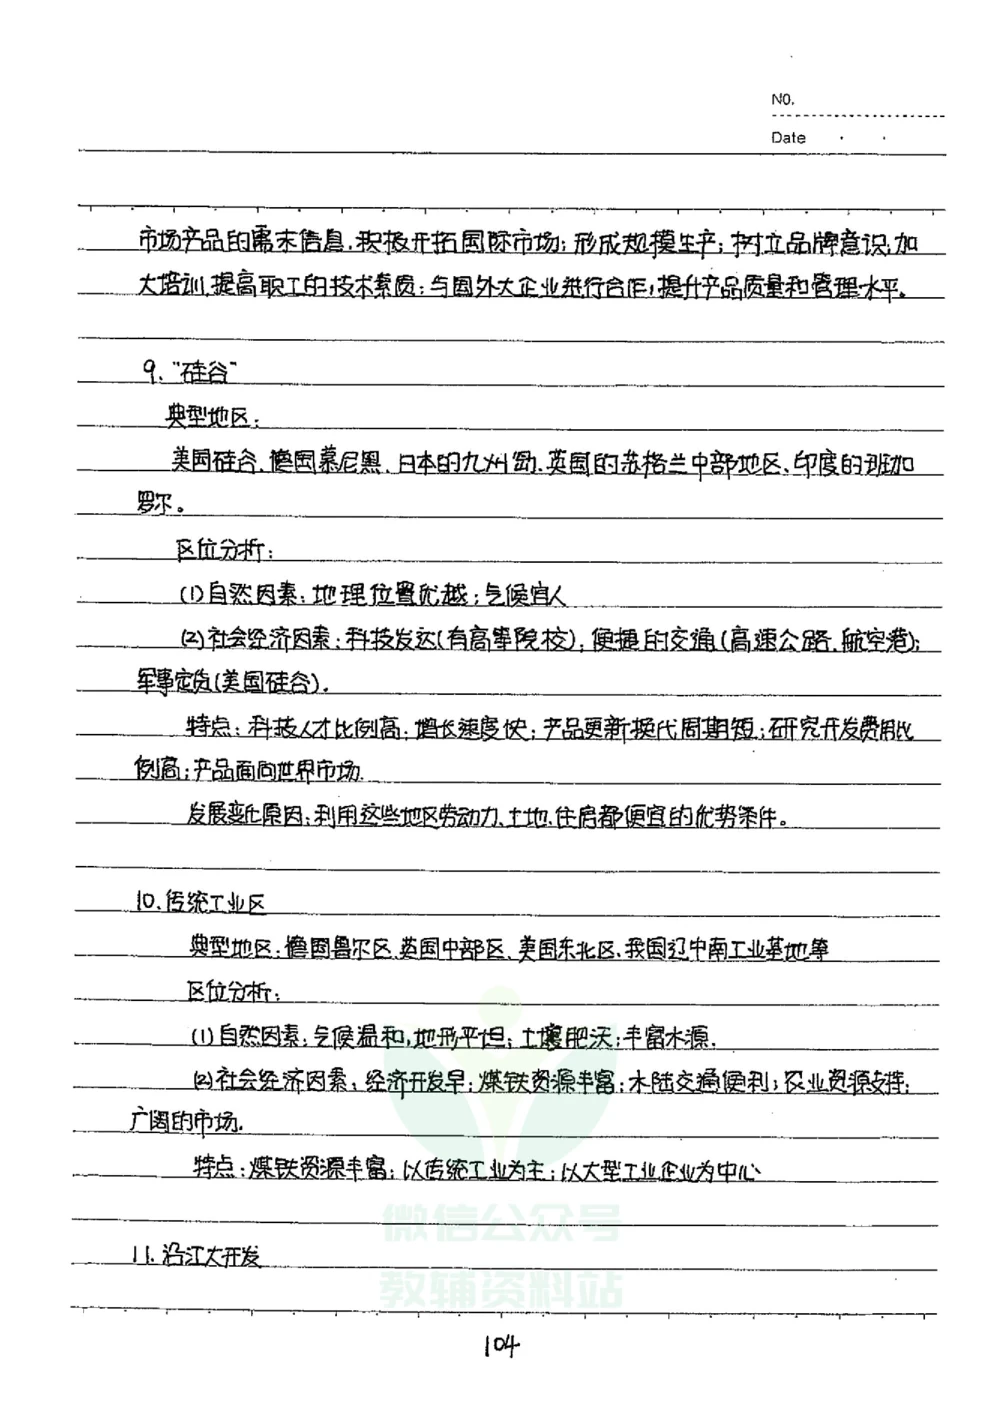 NO.
Date
市场产品的需求信息,积极开拓国际市场;形成规模生产;树立品牌意识;加
大培训,提高职工的技术素质;与国外大企业进行合作,提升产品质量和管理水平。
9.“硅谷”
典型地区:
美国硅谷、德国慕尼黑、日本的九州岛、英国的苏格兰中部地区、印度的班加
罗尔。
区位分析:
(1)自然因素:地理位置优越;气候宜人
(2)社会经济因素:科技发达(有高等院校);便捷的交通(高速公路、航空港);
军事定货(美国硅谷).
特点:科技人才比例高;增长速度快;产品更新换代周期短;研究开发费用比
例高;产品面向世界市场.
发展变化原因:利用这些地区劳动力、土地、住房都便宜的优势条件。
10.传统工业区
典型地区:德国鲁尔区、英国中部区、美国东北区、我国辽中南工业基地等
区位分析:
(1)自然因素:气候温和,地形平坦;土壤肥沃;丰富水源.
(2)社会经济因素:经济开发早;煤铁资源丰富;水陆交通便利;农业资源支持;
广阔的市场.
特点:煤铁资源丰富;以传统工业为主;以大型工业企业为中心
微信公众号
11.沿江大开发
教辅资料站
104